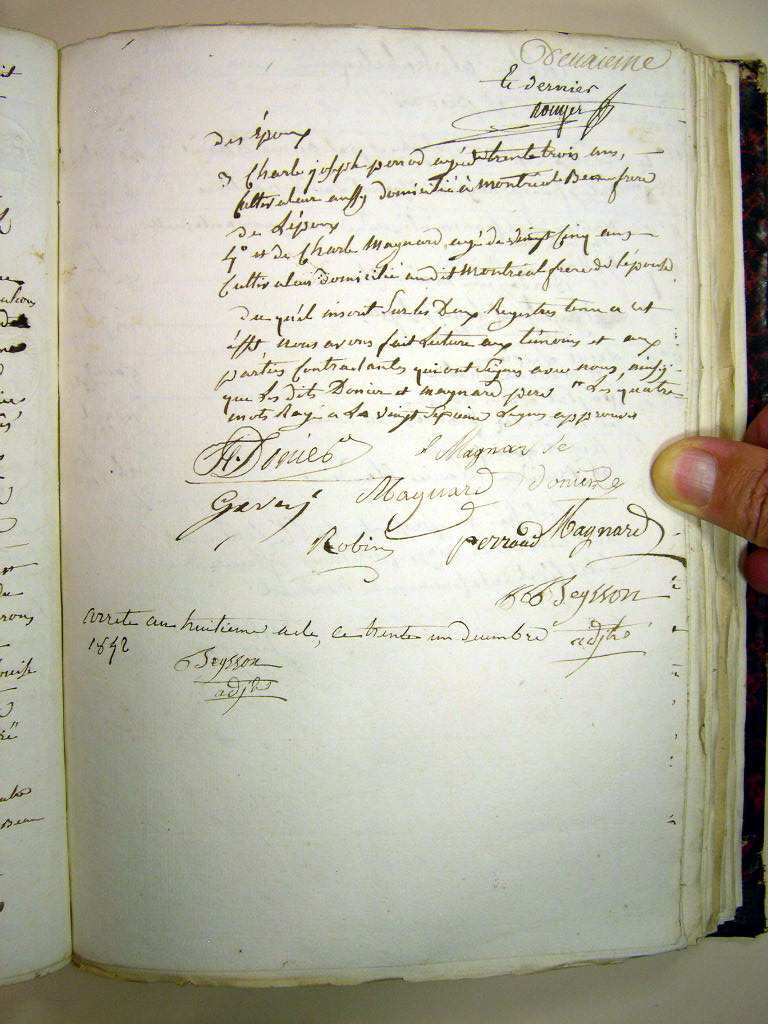 Deuxieme
Et dernier
Rouyer
des Époux
3 Charle joseph perrod agé de trente trois ans,
Cultivateur aussy domicilié à Montréal Beau frere
de L'époux
4° et de Charle Magnard, agé de vingt Cinq ans
Cultivateur domicilié audit Montréal frere de l'épouse.
de qu'il inscrit Sur les Deux Registres tenu a cet
éffet nous avons fait Lecture aux témoins et aux
parties Contractantes qui ont Signés avec nous, ainsy
que Les dits Donier et magnard pere " Les quatre
mots Rayé a La vingt Lignes approuvés
Donier
Magnard
Magnard
Robin
perraud
Magnard
Beysson
adjt
arrete au huitieme acte, ce trente un decembre
1852
Beysson
adjt